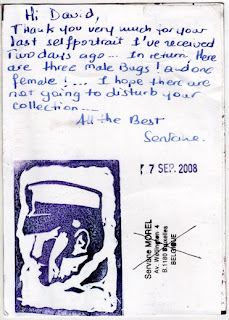 Hi David,
Thank you very much for your
last selfportrait I've received
Two days ago... In return Here
are three male Bugs! and one
female!... I hope there are
not going to disturb your
collection
All the Best
Servane.
7 SEP. 2008
Servane MOREL
Av. Wellington 4
B.1180 Bruxelles
BELGIQUE